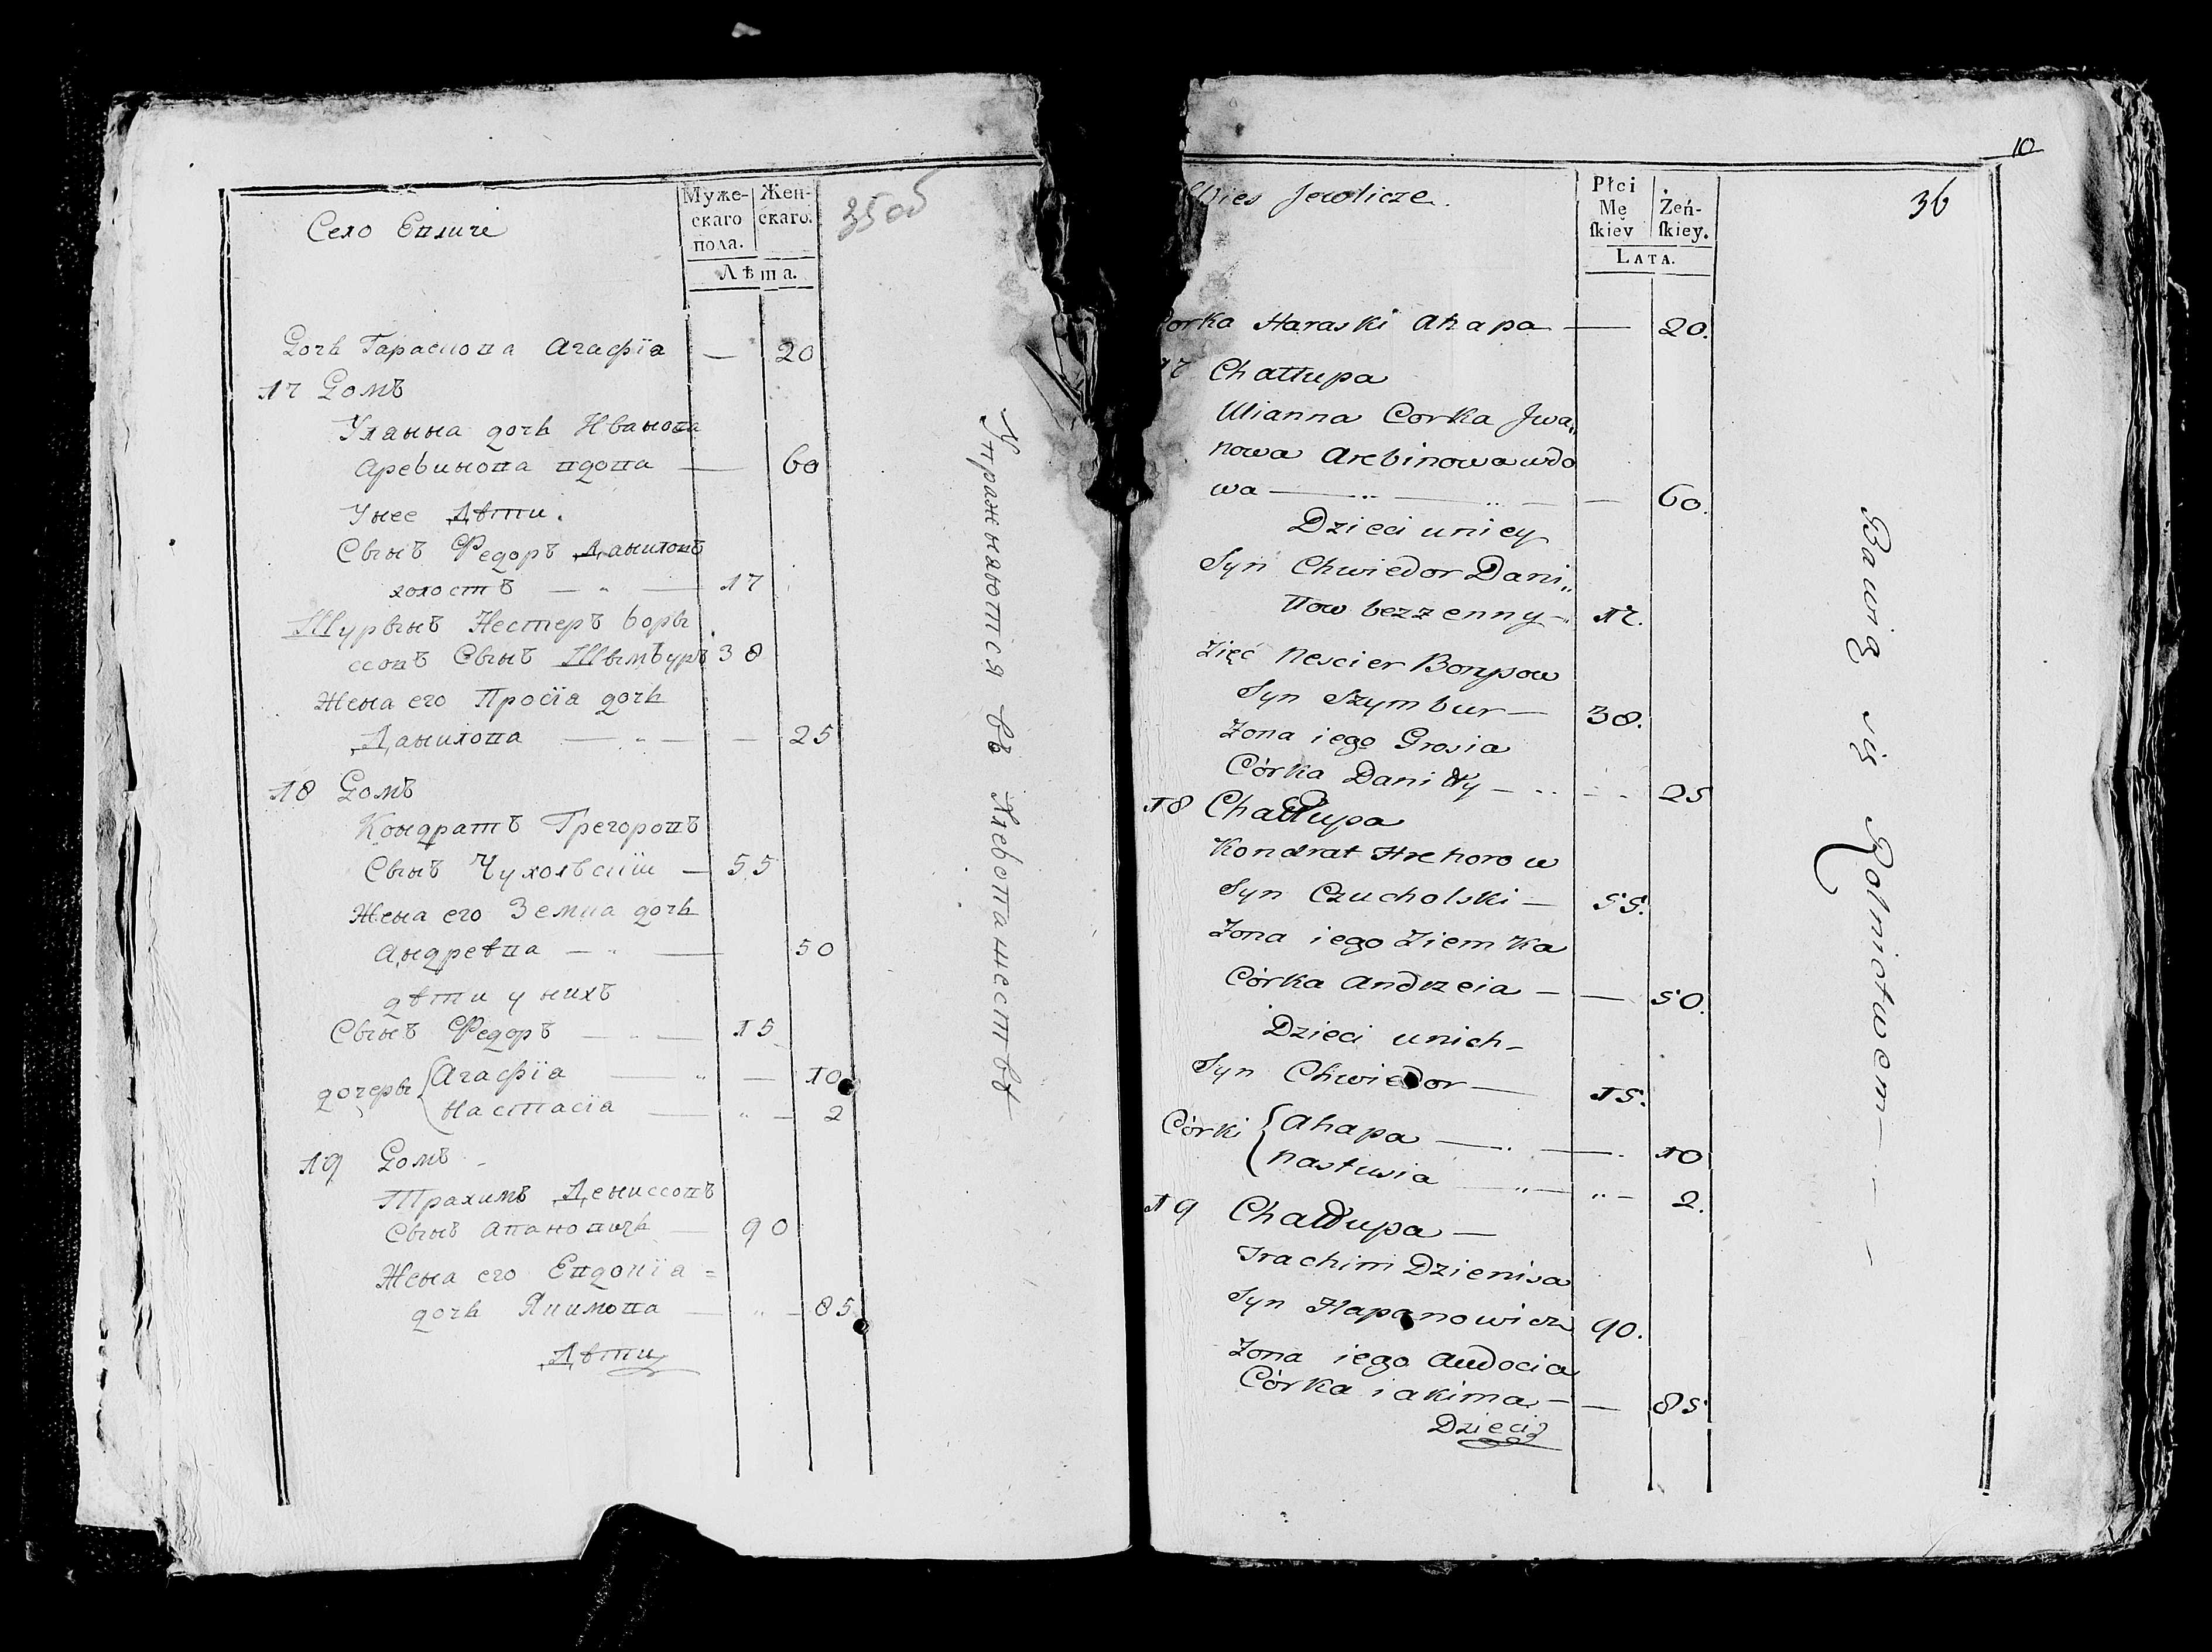 Село Евличи
Муже-
скаго
пола.
Жен-
скаго.
Лѣта.
35об
Дочь Гараскова Агафія — 20
17 Домъ
Ульяна дочь Иванова
Аребинова вдова — 60
У нее Дѣти.
Сынъ Федоръ Даниловъ
холостъ — 17
Шурынъ Нестеръ Боры
ссовъ Сынъ Шымъуръ 38
Жена его Просія дочь
Данилова — 25
18 Домъ
Кондратъ Грегоровъ
Сынъ Чухольскій — 55
Жена его Земка дочь
Андреева — 50
дѣти у нихъ
Сынъ Федоръ — 15
дочеры { Агафія — 10
Настасія — 2
19 Домъ
Трахимъ Дениссовъ
Сынъ Апановичь — 90
Жена его Евдокія =
дочь Якимова — 85
Дѣти
Упражняются въ Хлебопашествѣ
10
36
Wies Jewlicze.
Płci
Mę
skiey
Żeń-
skiey.
LATA.
Corka Haraski Ahapa — 20.
17 Chałłupa
Ulianna Corka Jwa„
nowa Arebinowa wdo
wa — 60.
Dzieci uniey
Syn Chwiedor Dani„
łłow bezzenny — 17.
Zięć Nescier Borysow
Syn Szymbur — 38.
Zona iego Prosia
Córka Daniły — 25
18 Chałłupa
Kondrat Hrehorow
Syn Czucholski — 55.
Zona iego Ziemka
Córka Andrzeia — 50.
Dzieci unich —
Syn Chwiedor — 15.
Córki { Ahapa — 10
Nastusia — 2.
19 Chałłupa —
Trachim Dzienisa
Syn Hapanowicz 90.
Zona iego Audocia
Córka iakima — 85
Dzieci
Bawią się Rolnictwem —